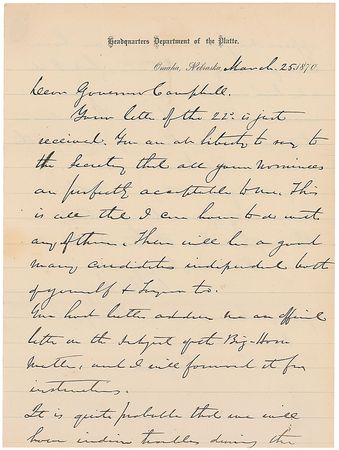 Headquarters Department of the Platte.
Omaha, Nebraska, March. 25. 1870.
Dear Governor Campbell.
Your letter of the 22d is just
received. You are at liberty to say to
the Secretary that all your nominees
are perfectly acceptable to me. This
is all that I can have to do with
any of them. There will be a good
many candidates independent both
of yourself &
You had better address me an official
letter on the subject of the Big-Horn
matter, and I will forward it for
instructions.
It is quite probable that we will
have indian troubles during the